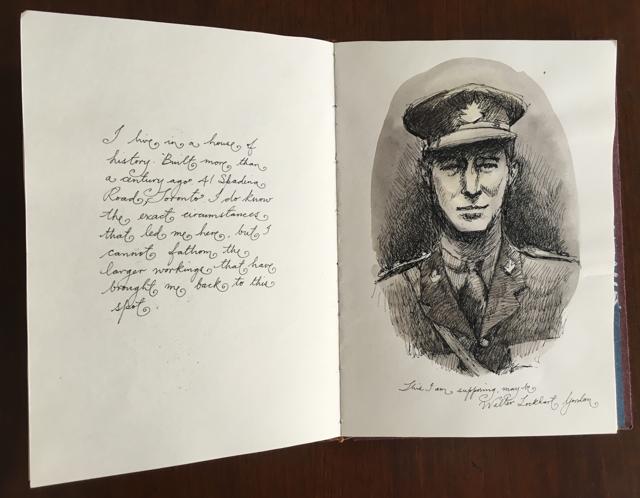 I live in a house of
history. Built more than
a century ago. 41 Spadina
Road, Toronto. I do know
the exact circumstances
that led me here, but I
cannot fathom the
larger workings that have
brought me back to this
spot.
This I am supposing, may be
Walter Lockhart Gordon